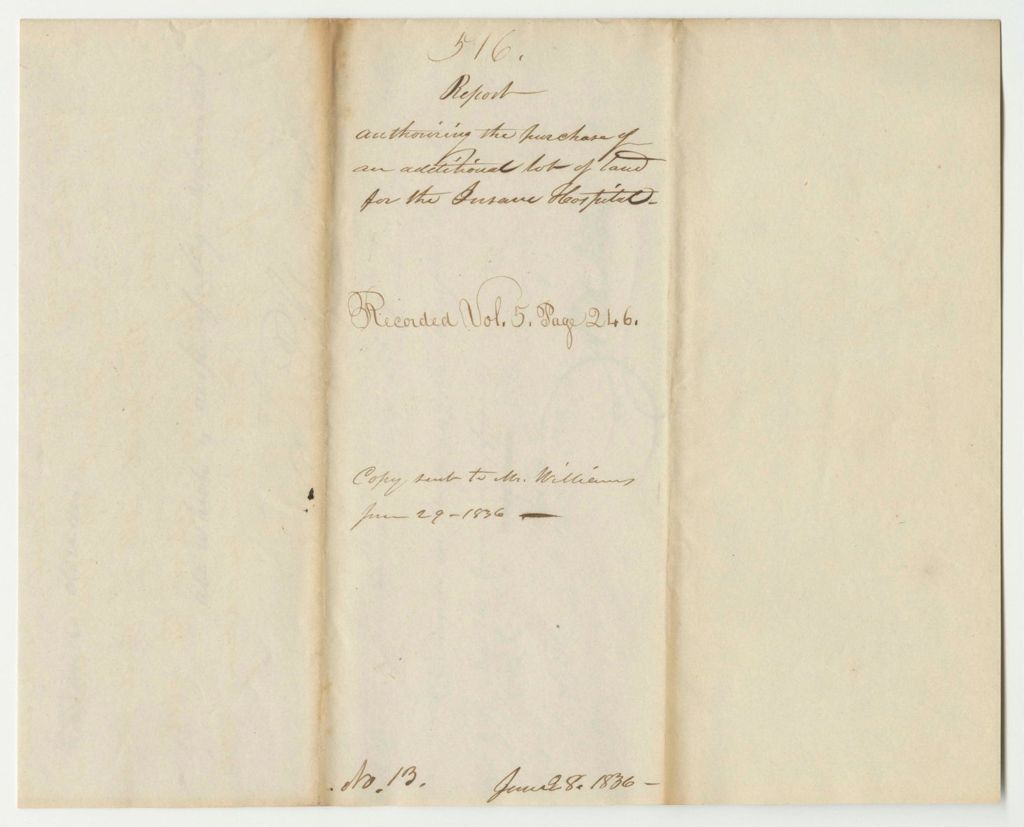 516.
Report
authorizing the purchase of
an additional lot of land
for the Insane Hospital-
Recorded Vol. 5. Page 246.
Copy sent to Mr. Williams
June 29-1836 —
No. 13. June 28. 1836-